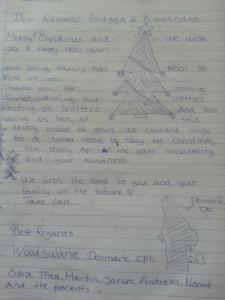 Dear Rawani, Bhagya & Rawandra
Merry Christmas and we wish
you a happy new year!
your loving family has been so
kind to us.
Thank you for cooking
dinner, watching our clothes,
renting us scooters and for
having us here in this
lovely house of yours. We couldn't wish
for a better home to stay for Christmas
We really your hospitality
and your kindness.
We wish the best to you and your
family in the future
Take care
Denmark
Best Regards
Denmark cph
Sara, Thea, Martin, Jonas, Andreas, Nanna
and the parents :)